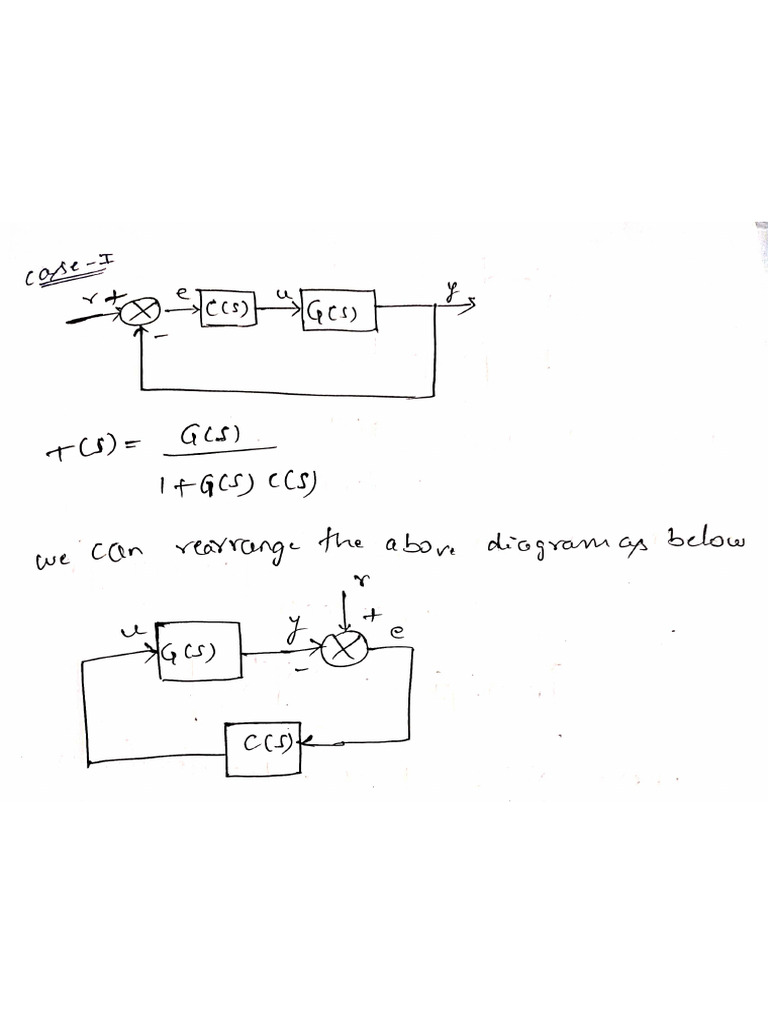 case-I
r + e C(S) u G(S) y
-
T(S) = G(S)
1+G(S) C(S)
we can rearrange the above diagram as below
r
u G(S) y + e
-
C(S)